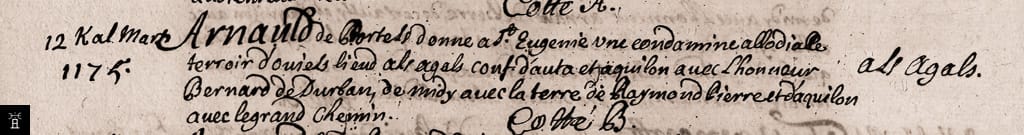 Cotté A.
12 Kal Mart Arnauld de Bortels donne a Ste Eugenie une condamine allodialle
1175. terroir d'ouiels lieud als agals conf. d'auta et aquilon avec Lhonneur als Agals.
Bernard de Durban, de midy avec la terre de Raymond Pierre et d'aquilon
avec le grand Chemin. Cotté B.